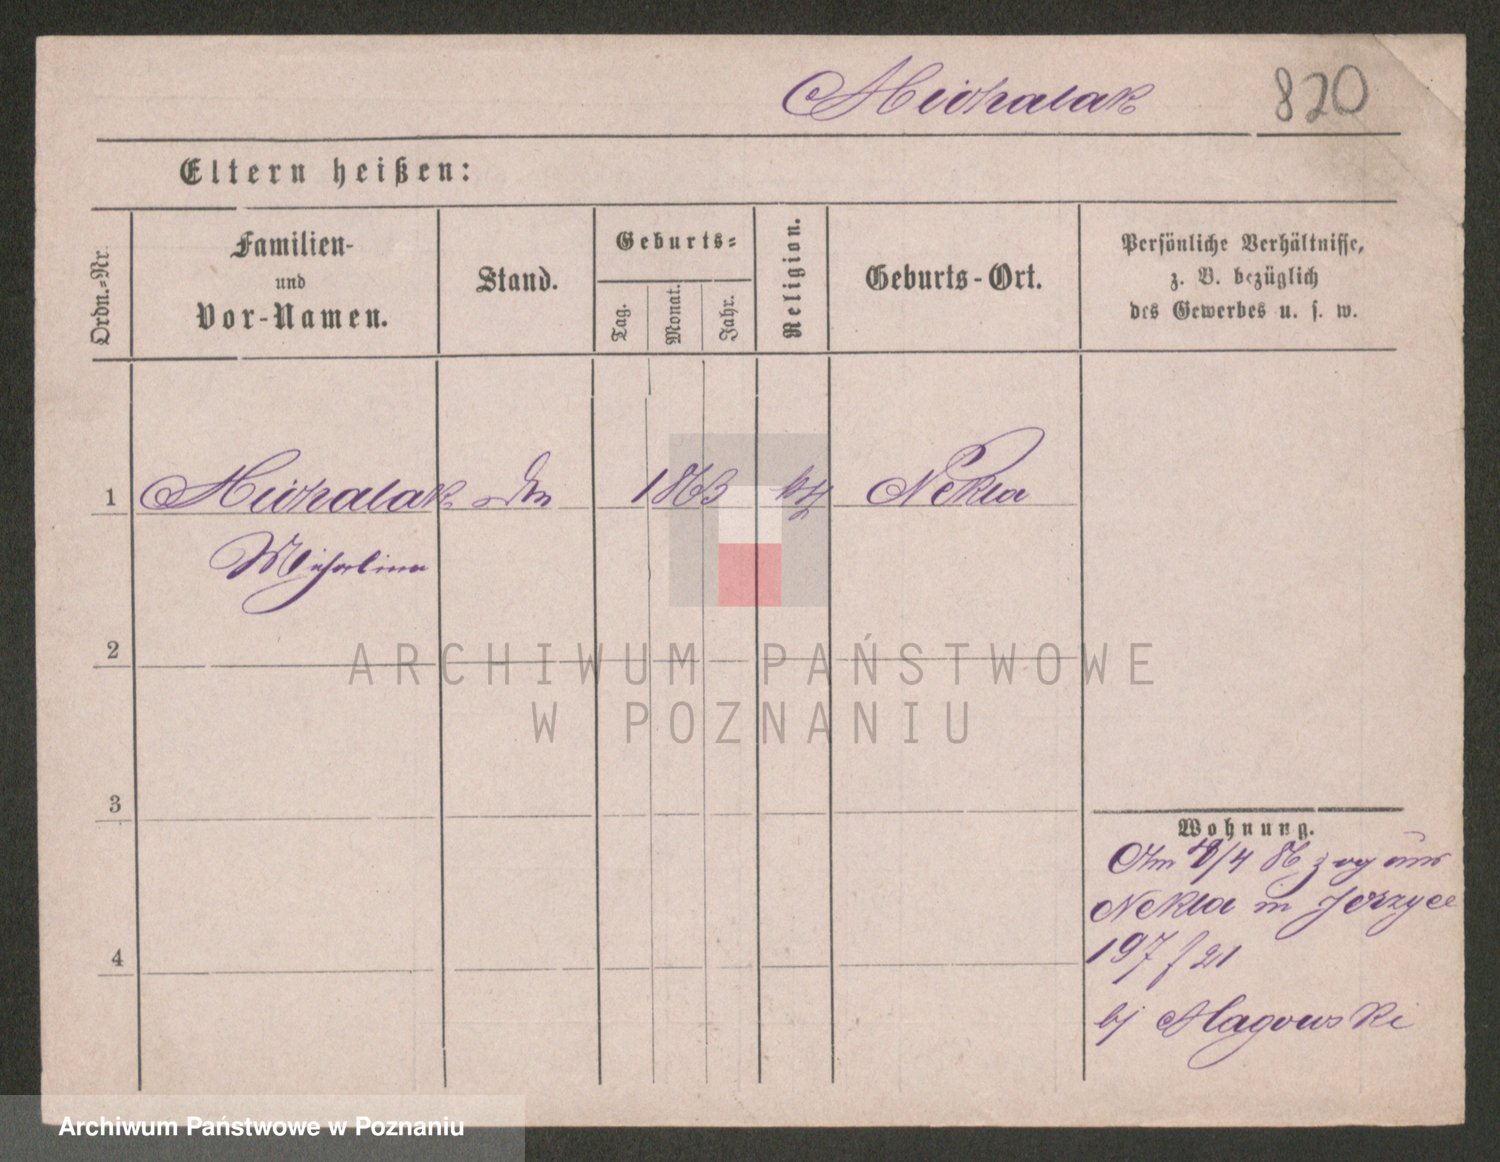 Michalak 820
Eltern heißen:
Ordn.-Nr.
Familien-
und
Vor-Namen.
Stand.
Geburts-
Tag.
Monat.
Jahr.
Religion.
Geburts-Ort.
Persönliche Verhältnisse,
z. B. bezüglich
des Gewerbes u. s. w.
1 Michalak 1863 Nekla
Michalina
2
ARCHIWUM PAŃSTWOWE
W POZNANIU
3
Wohnung.
Am /4 86 zog aus
Nekla in Jerzyce
197 f 21
bj
4
Archiwum Państwowe w Poznaniu